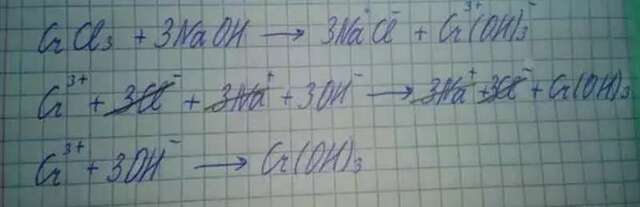 CrCl₃ + 3NaOH → 3Na⁺Cl⁻ + Cr³⁺(OH)₃⁻
Cr³⁺ + 3Cl⁻ + 3Na⁺ + 3OH⁻ → 3Na⁺ + 3Cl⁻ + Cr(OH)₃
Cr³⁺ + 3OH⁻ → Cr(OH)₃